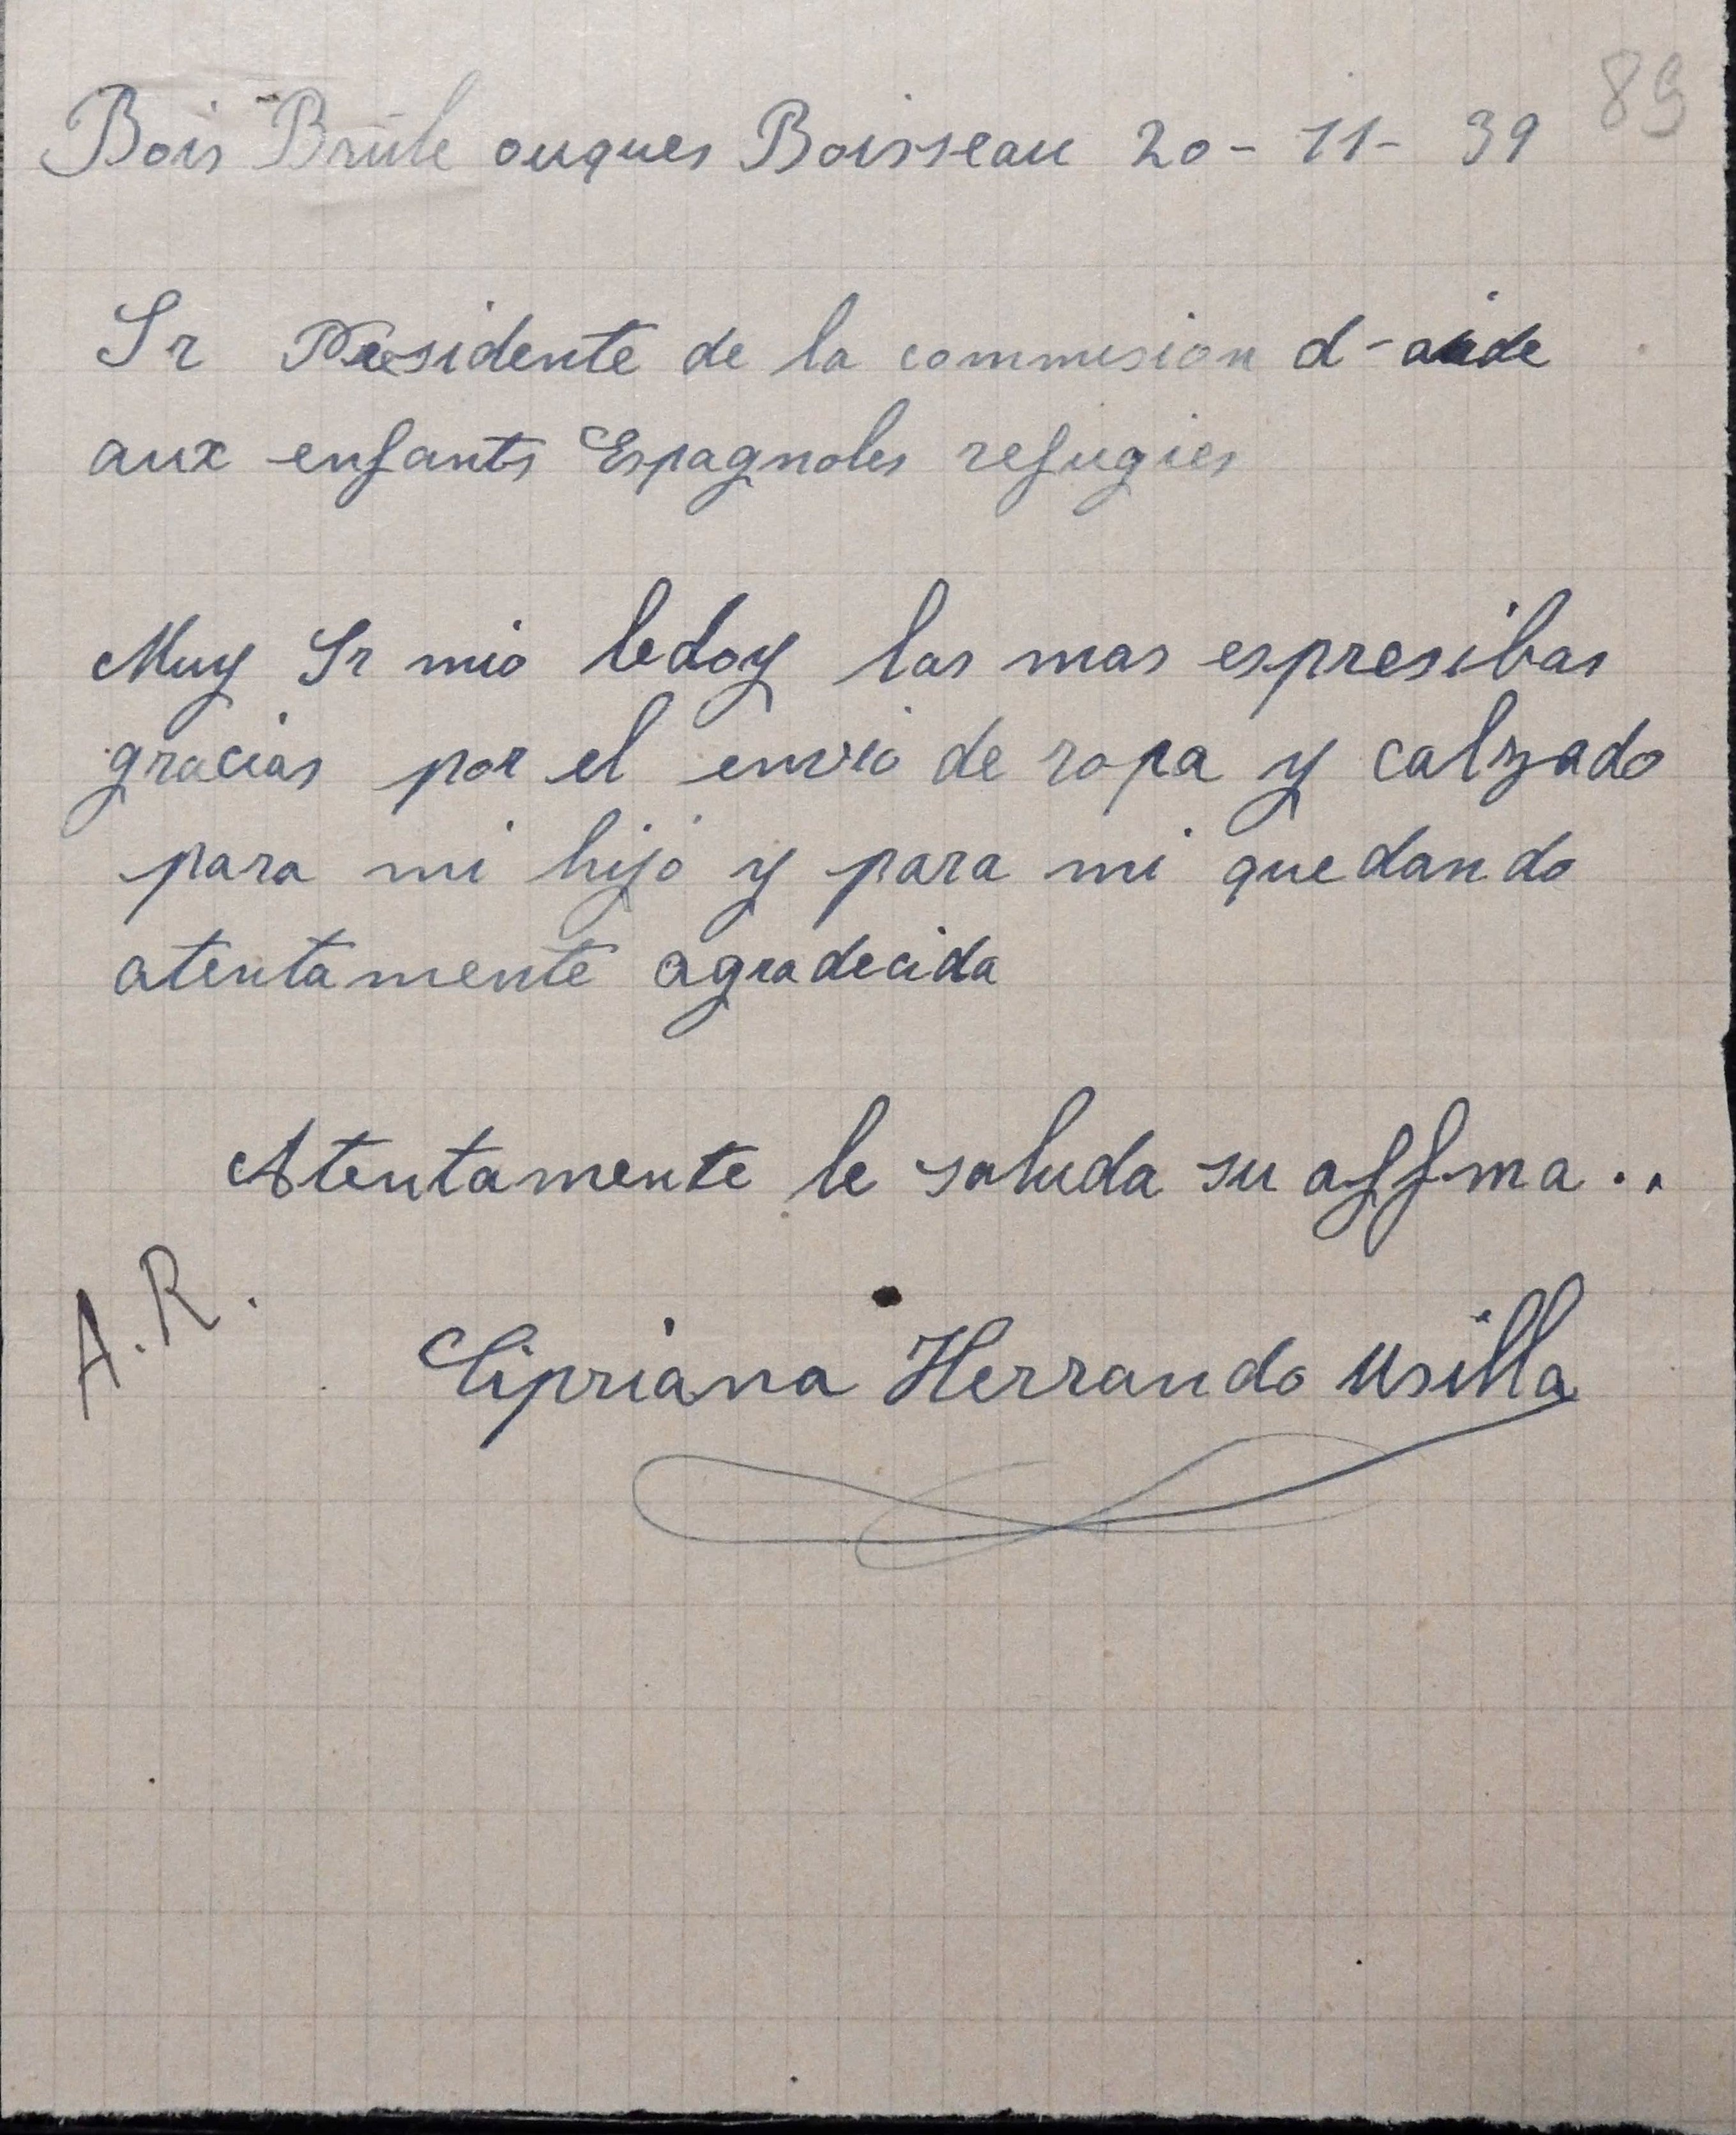 89
Bois Brûle ouques Boisseau 20-11-39
Sr Presidente de la commision d-aide
aux enfants Espagnoles refugies
Muy Sr mio ledoy las mas espresibas
gracias por el envio de ropa y calzado
para mi hijo y para mi quedando
atentamente agradecida
Atentamente le saluda su affma..
A.R.
Cipriana Herrando Usilla